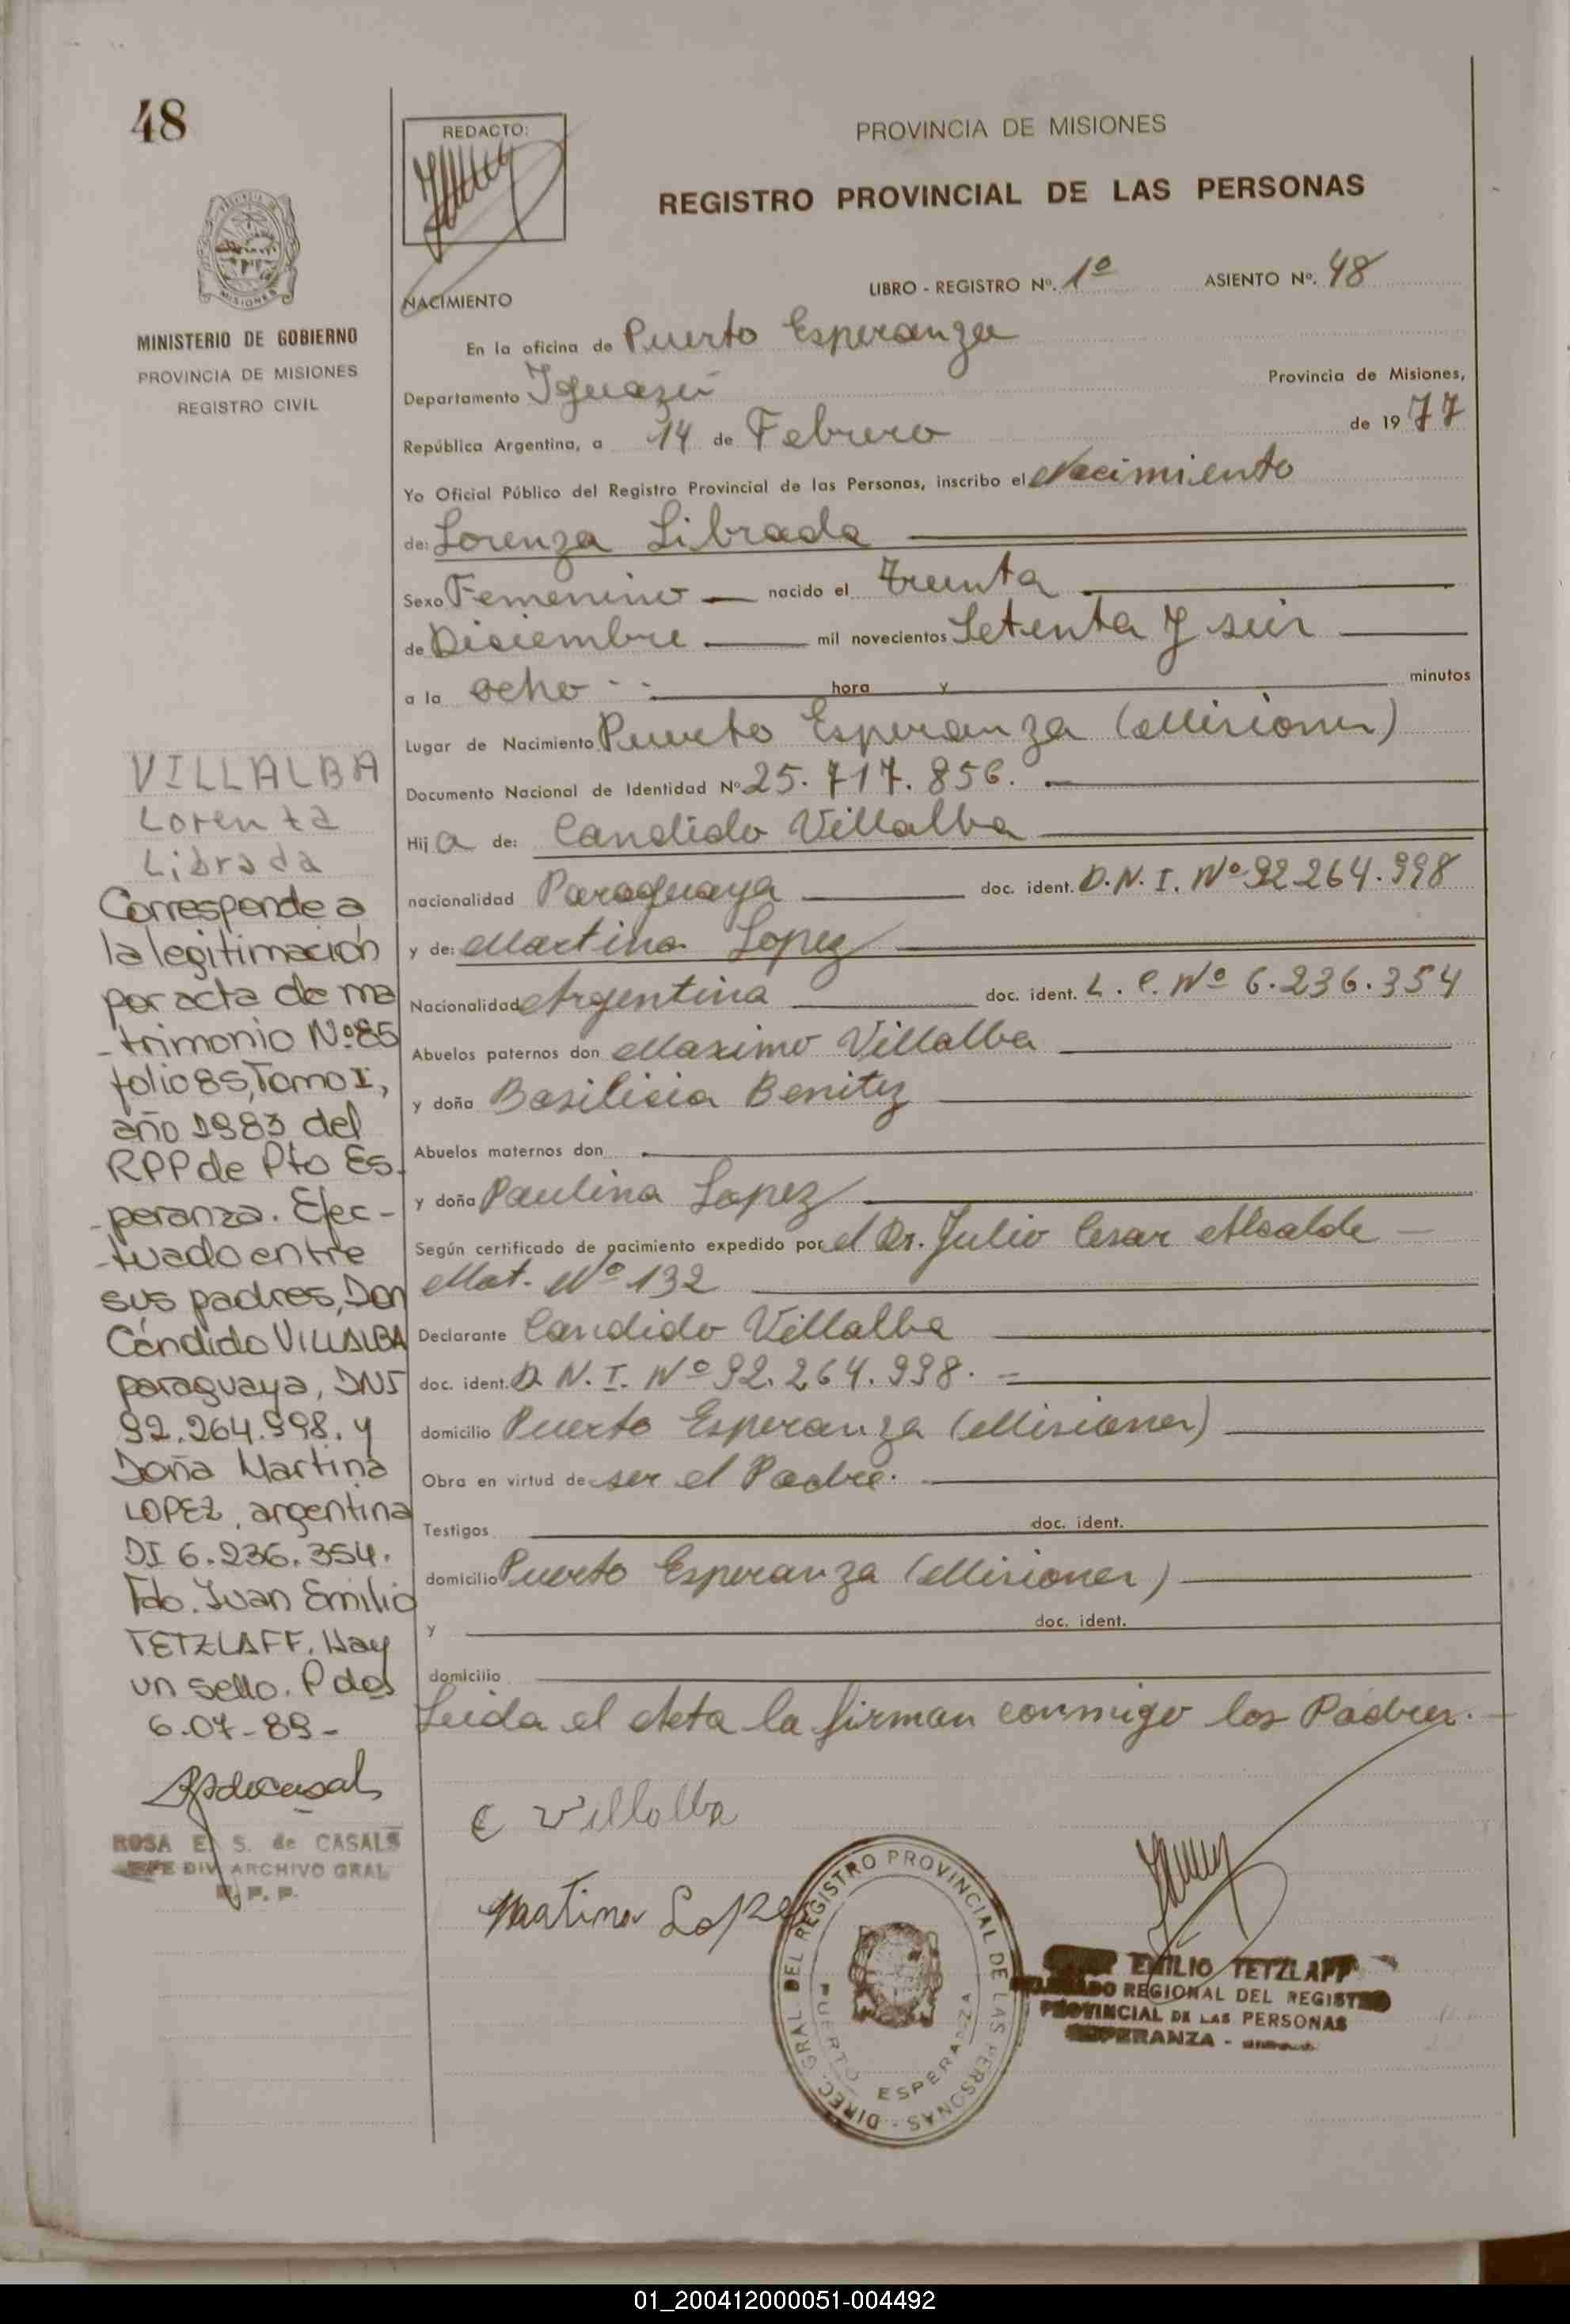 48
REDACTO:
PROVINCIA DE MISIONES
REGISTRO PROVINCIAL DE LAS PERSONAS
MISIONES
MINISTERIO DE GOBIERNO
PROVINCIA DE MISIONES
REGISTRO CIVIL
LIBRO - REGISTRO Nº. 1º ASIENTO Nº. 48
NACIMIENTO
En la oficina de Puerto Esperanza
Departamento Iguazú Provincia de Misiones,
República Argentina, a 14 de Febrero de 1977
Yo Oficial Público del Registro Provincial de las Personas, inscribo el Nacimiento
de: Lorenza Librada
Sexo Femenino nacido el Treinta
de Diciembre mil novecientos Setenta y seis
a la ocho hora y minutos
Lugar de Nacimiento Puerto Esperanza (Misiones)
Documento Nacional de Identidad Nº 25.717.856.
Hija de: Candido Villalba
nacionalidad Paraguaya doc. ident. D.N.I. Nº 92.264.998
y de: Martina Lopez
Nacionalidad Argentina doc. ident. L.C. Nº 6.236.354
Abuelos paternos don Maximo Villalba
y doña Basilicia Benitez
Abuelos maternos don
y doña Paulina Lopez
Según certificado de nacimiento expedido por el Dr. Julio Cesar Alcalde
Mat. Nº 132
Declarante Candido Villalba
doc. ident. D.N.I. Nº 92.264.998.
domicilio Puerto Esperanza (Misiones)
Obra en virtud de ser el Padre.
Testigos doc. ident.
domicilio Puerto Esperanza (Misiones)
y doc. ident.
domicilio
Leida el Acta la firman conmigo los Padres.
C Villalba
Martina Lopez
DIREC. GRAL. DEL REGISTRO PROVINCIAL DE LAS PERSONAS
PUERTO ESPERANZA
EMILIO TETZLAFF
REGIONAL DEL REGISTRO
PROVINCIAL DE LAS PERSONAS
ESPERANZA -
VILLALBA
Lorenza
Librada
Corresponde a
la legitimación
por acta de ma
-trimonio Nº 85
folio 85, Tomo I,
año 1983 del
RPP de Pto Es-
-peranza. Efec-
-tuado entre
sus padres, Don
Cándido VILLALBA
paraguaya, DNI
92.264.998. y
Doña Martina
LOPEZ, argentina
DI 6.236.354.
Fdo. Juan Emilio
TETZLAFF. Hay
un sello. Pdas
6-07-89-
ROSA E. S. de CASALS
JEFE DIV. ARCHIVO GRAL
R. P. P.
01_200412000051-004492